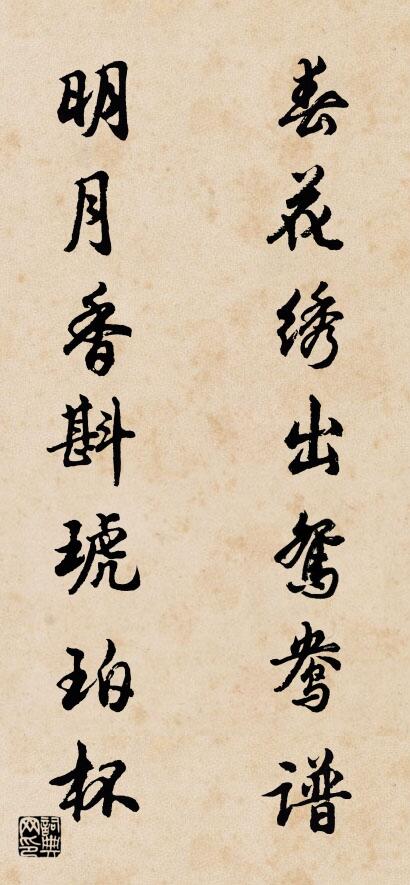 春花绣出鸳鸯谱
明月香斟琥珀杯
詞典
网印